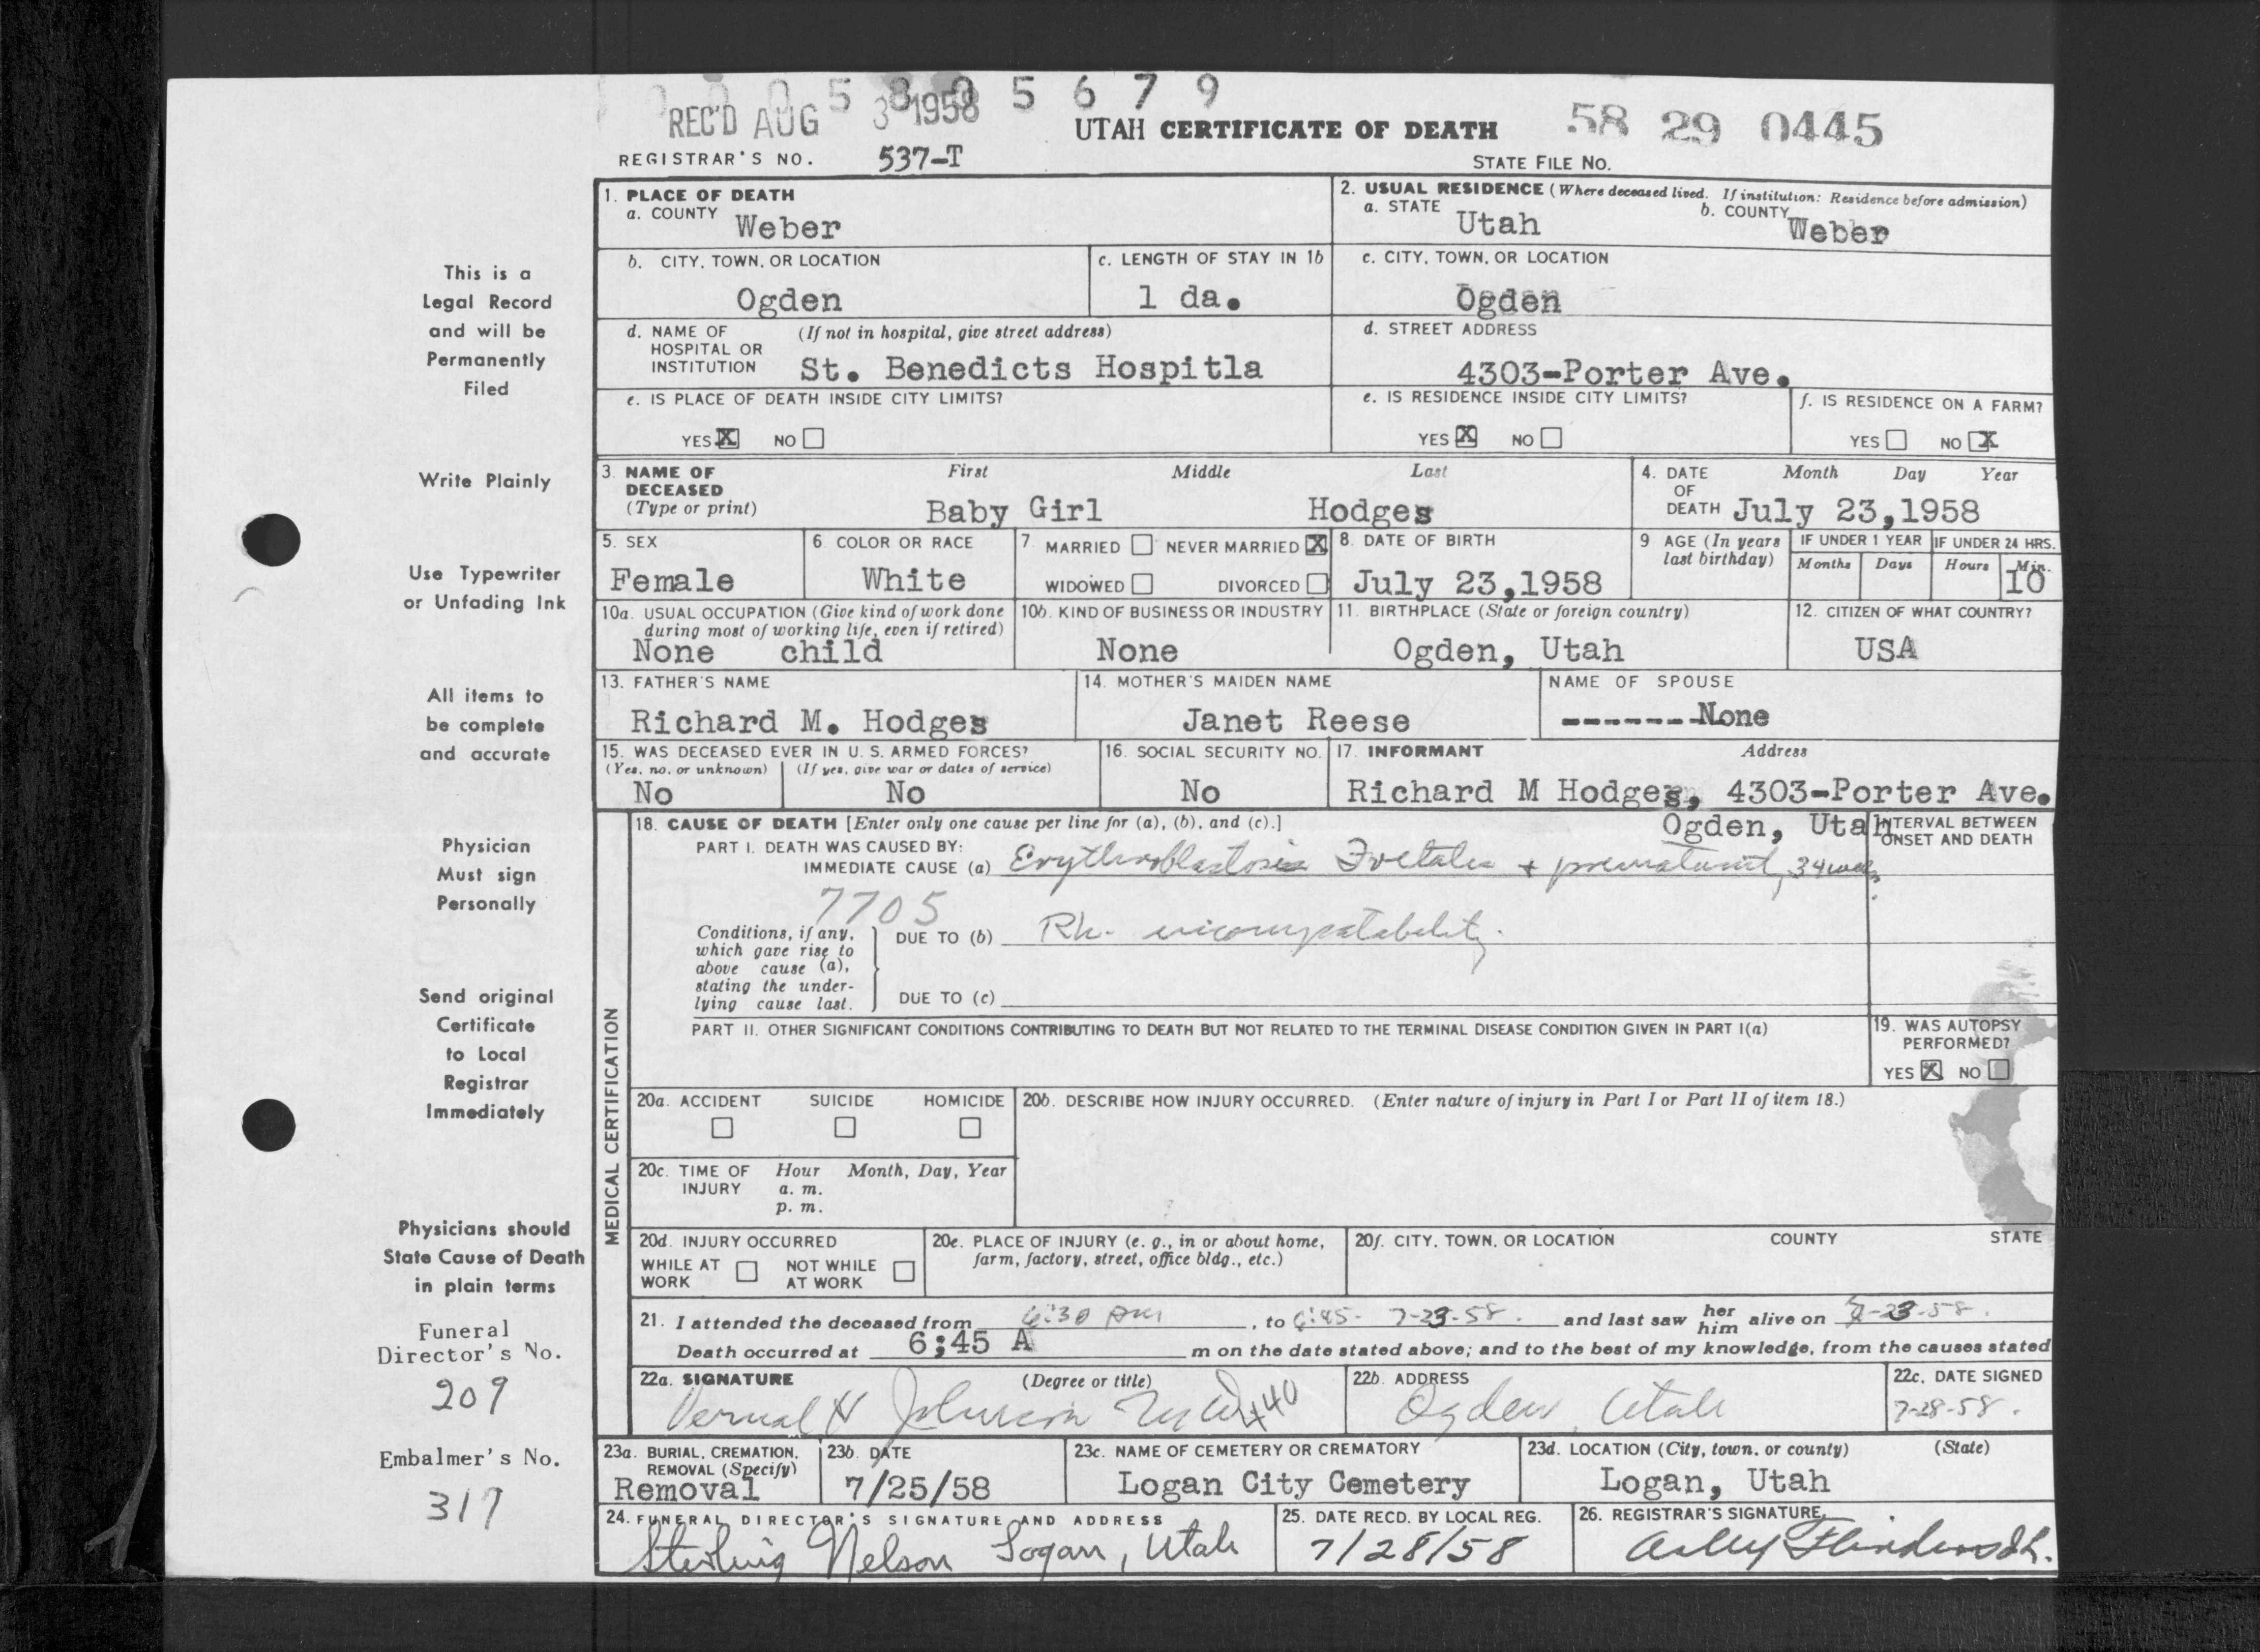 0 5 8 0 5 6 7 9
REC'D AUG 3 1958
UTAH CERTIFICATE OF DEATH
58 29 0445
REGISTRAR'S NO. 537-T
STATE FILE NO.
1. PLACE OF DEATH
a. COUNTY Weber
2. USUAL RESIDENCE (Where deceased lived. If institution: Residence before admission)
a. STATE Utah b. COUNTY Weber
b. CITY, TOWN, OR LOCATION
Ogden
c. LENGTH OF STAY IN 1b
1 da.
c. CITY, TOWN, OR LOCATION
Ogden
d. NAME OF HOSPITAL OR INSTITUTION (If not in hospital, give street address)
St. Benedicts Hospitla
d. STREET ADDRESS
4303-Porter Ave.
e. IS PLACE OF DEATH INSIDE CITY LIMITS?
YES X NO
e. IS RESIDENCE INSIDE CITY LIMITS?
YES X NO
f. IS RESIDENCE ON A FARM?
YES NO X
3. NAME OF DECEASED (Type or print)
First Middle Last
Baby Girl Hodges
4. DATE OF DEATH Month Day Year
July 23,1958
5. SEX
Female
6. COLOR OR RACE
White
7. MARRIED NEVER MARRIED X
WIDOWED DIVORCED
8. DATE OF BIRTH
July 23,1958
9 AGE (In years last birthday)
IF UNDER 1 YEAR
Months Days
IF UNDER 24 HRS.
Hours Min.
10
10a. USUAL OCCUPATION (Give kind of work done during most of working life, even if retired)
None child
10b. KIND OF BUSINESS OR INDUSTRY
None
11. BIRTHPLACE (State or foreign country)
Ogden, Utah
12. CITIZEN OF WHAT COUNTRY?
USA
13. FATHER'S NAME
Richard M. Hodges
14. MOTHER'S MAIDEN NAME
Janet Reese
NAME OF SPOUSE
-------None
15. WAS DECEASED EVER IN U. S. ARMED FORCES?
(Yes, no, or unknown) (If yes, give war or dates of service)
No No
16. SOCIAL SECURITY NO.
No
17. INFORMANT Address
Richard M Hodges, 4303-Porter Ave.
Ogden, Utah
18. CAUSE OF DEATH [Enter only one cause per line for (a), (b), and (c).]
INTERVAL BETWEEN ONSET AND DEATH
PART I. DEATH WAS CAUSED BY:
IMMEDIATE CAUSE (a) Erythroblastosis Foetales + prematurit, 34 weeks
7705
Conditions, if any, which gave rise to above cause (a), stating the underlying cause last.
DUE TO (b) Rh. incompatability.
DUE TO (c)
PART II. OTHER SIGNIFICANT CONDITIONS CONTRIBUTING TO DEATH BUT NOT RELATED TO THE TERMINAL DISEASE CONDITION GIVEN IN PART I(a)
19. WAS AUTOPSY PERFORMED?
YES X NO
MEDICAL CERTIFICATION
20a. ACCIDENT SUICIDE HOMICIDE
20b. DESCRIBE HOW INJURY OCCURRED. (Enter nature of injury in Part I or Part II of item 18.)
20c. TIME OF INJURY Hour Month, Day, Year
a. m.
p. m.
20d. INJURY OCCURRED
WHILE AT WORK NOT WHILE AT WORK
20e. PLACE OF INJURY (e. g., in or about home, farm, factory, street, office bldg., etc.)
20f. CITY, TOWN, OR LOCATION COUNTY STATE
21. I attended the deceased from 6:30 AM, to 6:45- 7-23-58. and last saw her him alive on 7-23-58.
Death occurred at 6;45 A m on the date stated above; and to the best of my knowledge, from the causes stated
22a. SIGNATURE (Degree or title)
Vernal H Johnson M.D. 440
22b. ADDRESS
Ogden, Utah
22c. DATE SIGNED
7-28-58.
23a. BURIAL, CREMATION, REMOVAL (Specify)
Removal
23b. DATE
7/25/58
23c. NAME OF CEMETERY OR CREMATORY
Logan City Cemetery
23d. LOCATION (City, town, or county) (State)
Logan, Utah
24. FUNERAL DIRECTOR'S SIGNATURE AND ADDRESS
Sterling Nelson Logan, Utah
25. DATE RECD. BY LOCAL REG.
7/28/58
26. REGISTRAR'S SIGNATURE
This is a
Legal Record
and will be
Permanently
Filed
Write Plainly
Use Typewriter
or Unfading Ink
All items to
be complete
and accurate
Physician
Must sign
Personally
Send original
Certificate
to Local
Registrar
Immediately
Physicians should
State Cause of Death
in plain terms
Funeral
Director's No.
209
Embalmer's No.
317